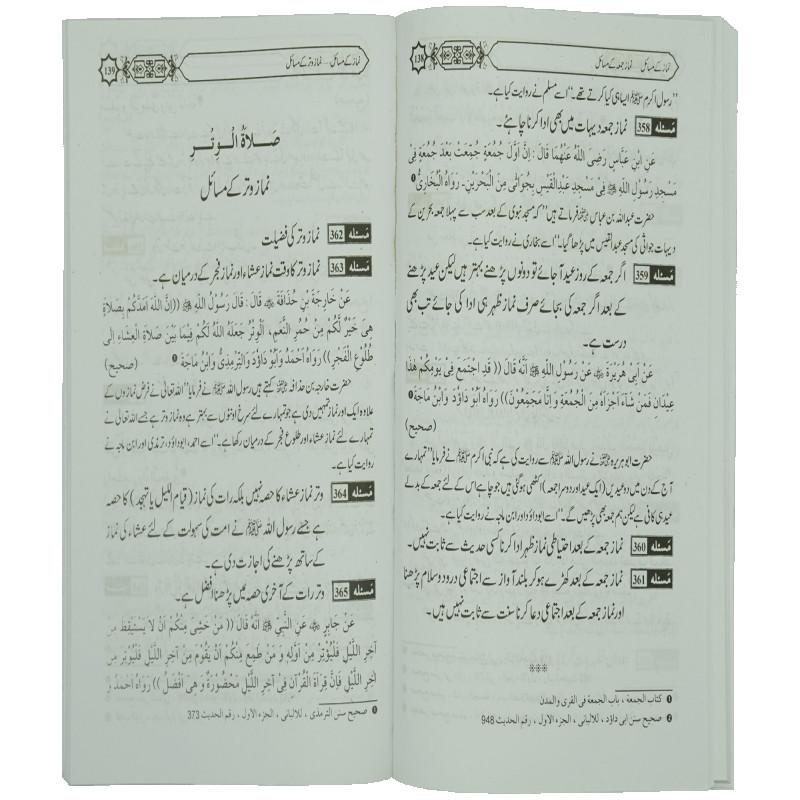 نماز کے مسائل ... نماز جمعہ کے مسائل
138
"رسول اکرم ﷺ ایسا ہی کیا کرتے تھے۔" اسے مسلم نے روایت کیا ہے۔
مسئلہ 358 نماز جمعہ دیہات میں بھی ادا کرنا چاہئے۔
عَنِ ابْنِ عَبَّاسٍ رَضِيَ اللّٰهُ عَنْهُمَا قَالَ : اِنَّ اَوَّلَ جُمُعَةٍ جُمِّعَتْ بَعْدَ جُمُعَةٍ فِيْ
مَسْجِدِ رَسُوْلِ اللّٰهِ ﷺ فِيْ مَسْجِدِ عَبْدِالْقَيْسِ بِجُوَاثٰى مِنَ الْبَحْرَيْنِ۔ رَوَاهُ الْبُخَارِيُّ ❶
حضرت عبداللہ بن عباس رضی اللہ عنہما فرماتے ہیں "کہ مسجد نبوی کے بعد سب سے پہلا جمعہ بحرین کے
دیہات جواثی کی مسجد عبدالقیس میں پڑھا گیا۔" اسے بخاری نے روایت کیا ہے۔
مسئلہ 359 اگر جمعہ کے روز عید آجائے تو دونوں پڑھنے بہتر ہیں لیکن عید پڑھنے
کے بعد اگر جمعہ کی بجائے صرف نماز ظہر ہی ادا کی جائے تب بھی
درست ہے۔
عَنْ اَبِيْ هُرَيْرَةَ ؓ عَنْ رَسُوْلِ اللّٰهِ ﷺ اَنَّهُ قَالَ (( قَدِ اجْتَمَعَ فِيْ يَوْمِكُمْ هٰذَا
عِيْدَانِ فَمَنْ شَآءَ اَجْزَاَهُ مِنَ الْجُمُعَةِ وَ اِنَّا مُجَمِّعُوْنَ)) رَوَاهُ اَبُوْ دَاوُدَ وَابْنُ مَاجَةَ ❷
(صحیح)
حضرت ابو ہریرہ ؓ نے رسول اللہ ﷺ سے روایت کی ہے کہ نبی اکرم ﷺ نے فرمایا "تمہارے
آج کے دن میں دو عیدیں (ایک عید اور دوسرا جمعہ) اکٹھی ہوگئی ہیں جو چاہے اس کے لئے جمعہ کے بدلے
عید ہی کافی ہے لیکن ہم جمعہ بھی پڑھیں گے۔" اسے ابوداؤد اور ابن ماجہ نے روایت کیا ہے۔
مسئلہ 360 نماز جمعہ کے بعد احتیاطی نماز ظہر ادا کرنا کسی حدیث سے ثابت نہیں۔
مسئلہ 361 نماز جمعہ کے بعد کھڑے ہوکر بلند آواز سے اجتماعی درود و سلام پڑھنا
اور نماز جمعہ کے بعد اجتماعی دعا کرنا سنت سے ثابت نہیں ہیں۔
***
❶ کتاب الجمعة ، باب الجمعة فی القری والمدن
❷ صحیح سنن ابی داؤد ، للالبانی ، الجزء الاول ، رقم الحدیث 948
نماز کے مسائل ... نماز وتر کے مسائل
139
صَلَاةُ الْوِتْرِ
نماز وتر کے مسائل
مسئلہ 362 نماز وتر کی فضیلت
مسئلہ 363 نماز وتر کا وقت نماز عشاء اور نماز فجر کے درمیان ہے۔
عَنْ خَارِجَةَ بْنِ حُذَافَةَ ؓ قَالَ : قَالَ رَسُوْلُ اللّٰهِ ﷺ ((اِنَّ اللّٰهَ اَمَدَّكُمْ بِصَلَاةٍ
هِيَ خَيْرٌ لَّكُمْ مِنْ حُمُرِ النَّعَمِ، اَلْوِتْرُ جَعَلَهُ اللّٰهُ لَكُمْ فِيْمَا بَيْنَ صَلَاةِ الْعِشَاءِ اِلٰى
طُلُوْعِ الْفَجْرِ)) رَوَاهُ اَحْمَدُ وَاَبُوْ دَاوُدَ وَالتِّرْمِذِيُّ وَابْنُ مَاجَةَ ❶ (صحیح)
حضرت خارجہ بن حذافہ ؓ کہتے ہیں رسول اللہ ﷺ نے فرمایا "اللہ تعالیٰ نے فرض نمازوں کے
علاوہ ایک اور نماز تمہیں دی ہے جو تمہارے لئے سرخ اونٹوں سے بہتر ہے وہ نماز وتر ہے جسے اللہ تعالیٰ نے
تمہارے لئے نماز عشاء اور طلوع فجر کے درمیان رکھا ہے۔" اسے احمد، ابوداؤد، ترمذی اور ابن ماجہ نے
روایت کیا ہے۔
مسئلہ 364 وتر نماز عشاء کا حصہ نہیں بلکہ رات کی نماز (قیام اللیل یا تہجد) کا حصہ
ہے جسے رسول اللہ ﷺ نے امت کی سہولت کے لئے عشاء کی نماز
کے ساتھ پڑھنے کی اجازت دی ہے۔
مسئلہ 365 وتر رات کے آخری حصہ میں پڑھنا افضل ہے۔
عَنْ جَابِرٍ ؓ عَنِ النَّبِيِّ ﷺ اَنَّهُ قَالَ (( مَنْ خَشِيَ مِنْكُمْ اَنْ لَا يَسْتَيْقِظَ مِنْ
آخِرِ اللَّيْلِ فَلْيُوْتِرْ مِنْ اَوَّلِهِ وَ مَنْ طَمِعَ مِنْكُمْ اَنْ يَقُوْمَ مِنْ آخِرِ اللَّيْلِ فَلْيُوْتِرْ مِنْ
آخِرِ اللَّيْلِ فَاِنَّ قِرَاءَةَ الْقُرْآنِ فِيْ آخِرِ اللَّيْلِ مَحْضُوْرَةٌ وَ هِيَ اَفْضَلُ )) رَوَاهُ اَحْمَدُ وَ
❶ صحیح سنن الترمذی ، للالبانی ، الجزء الاول ، رقم الحدیث 373